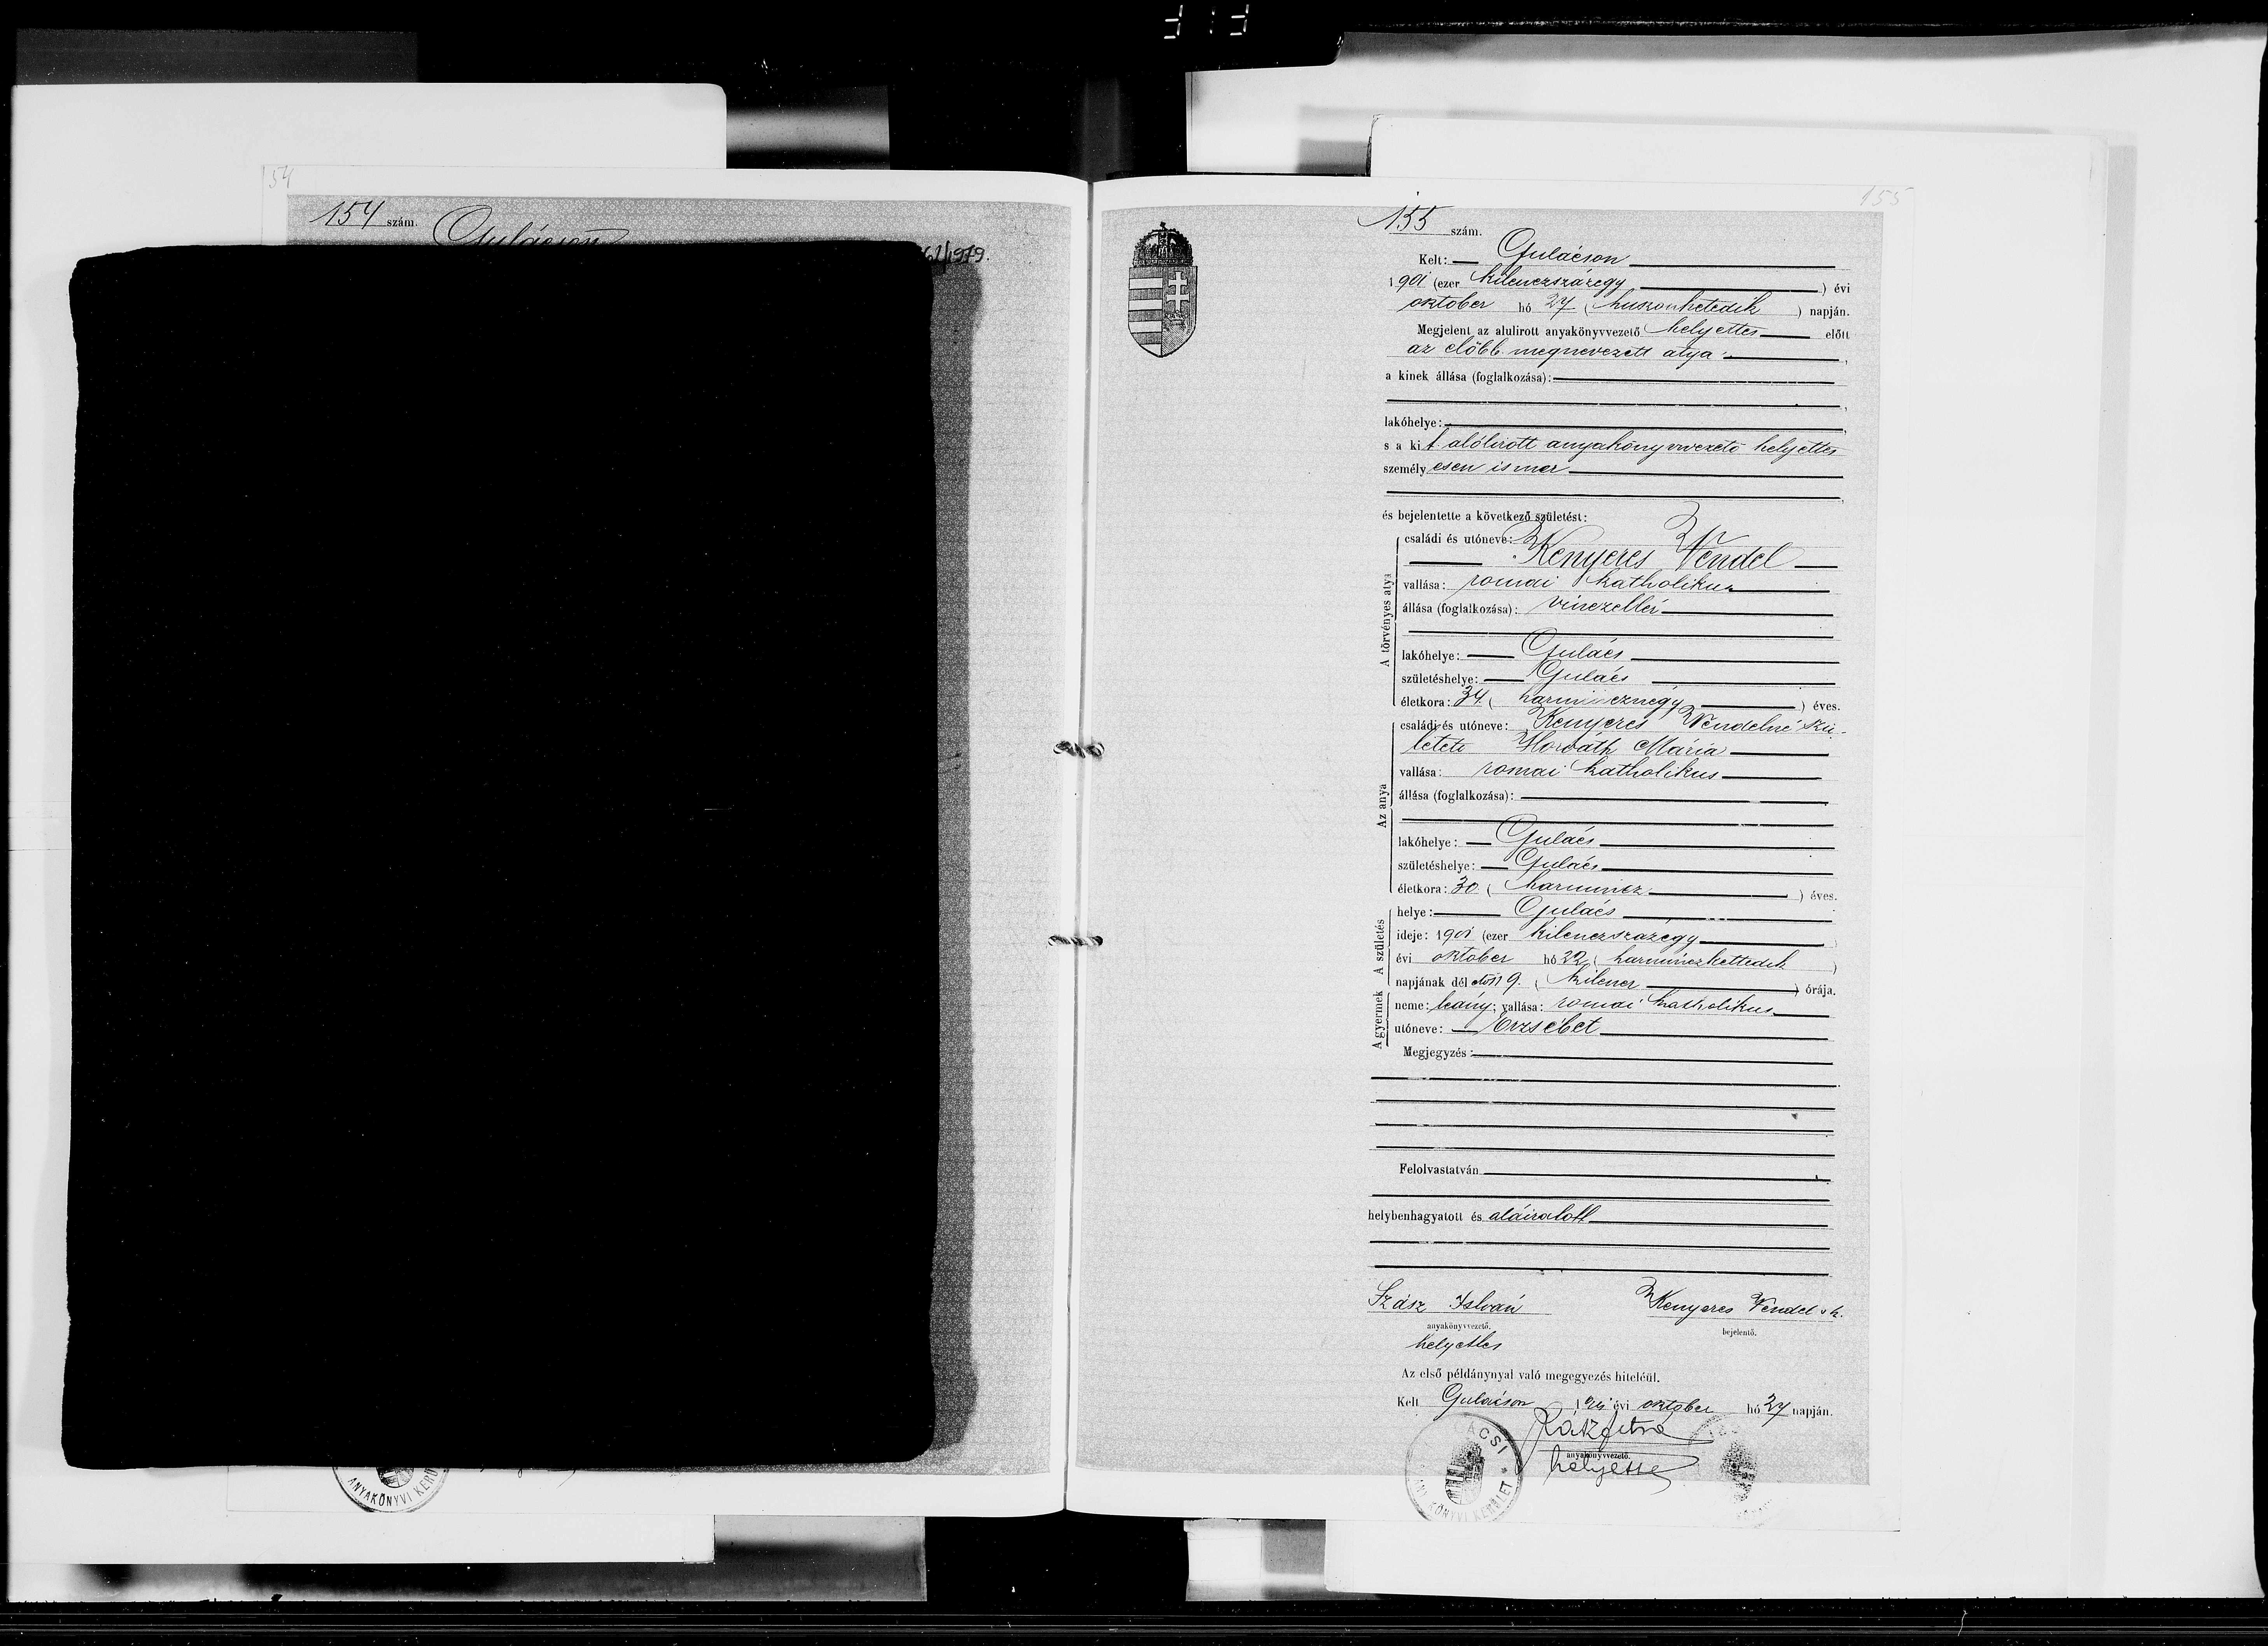 54
154 szám.
Gulácson
1979.
155
155 szám.
Kelt: Gulácson
1901 (ezer kilenczszázegy ) évi
oktober hó 27 ( huszonhetedik ) napján.
Megjelent az alulirott anyakönyvvezető helyettes előtt
az előbb megnevezett atya
a kinek állása (foglalkozása):
lakóhelye:
s a kit alólirott anyakönyvvezető helyettes
személyesen ismer
és bejelentette a következő születést:
A törvényes atya
családi és utóneve:
Kenyeres Vendel
vallása: romai katholikus
állása (foglalkozása): vinczellér
lakóhelye: Gulács
születéshelye: Gulács
életkora: 34 ( harmincznégy ) éves.
Az anya
családi és utóneve: Kenyeres Vendelné szü-
letett Horváth Mária
vallása: romai katholikus
állása (foglalkozása):
lakóhelye: Gulács
születéshelye: Gulács
életkora: 30 ( harmincz ) éves.
A születés
helye: Gulács
ideje: 1901 (ezer kilenczszázegy )
évi oktober hó 22 ( harminczkettedik )
napjának dél előtt 9. ( kilencz ) órája.
A gyermek
neme: leány; vallása: romai katholikus
utóneve: Erzsébet
Megjegyzés:
Felolvastatván
helybenhagyatott és aláiratott
Szász István
anyakönyvvezető.
helyettes
Kenyeres Vendel
bejelentő.
Az első példánynyal való megegyezés hiteléül.
Kelt Gulácson 1901 évi oktober hó 27 napján.
anyakönyvvezető.
helyettes
ANYAKÖNYVI KERÜ
ÁCSI
KÖNYVI KERÜLET